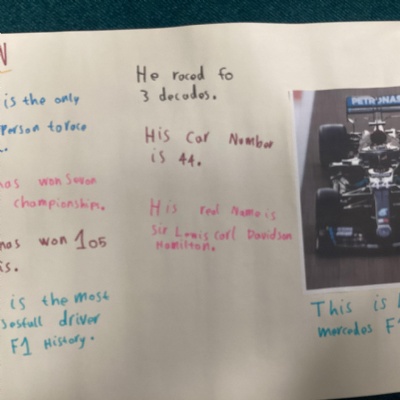 N
is the only
Person to race
has won Seven
championship.
has won 105
is.
is the most
sesfull driver
F1 History.
He raced fo
3 decades.
His Car Number
is 44.
His real Name is
Sir Lewis Carl Davidson
Hamilton.
PETRONAS
This is
mercedes F1